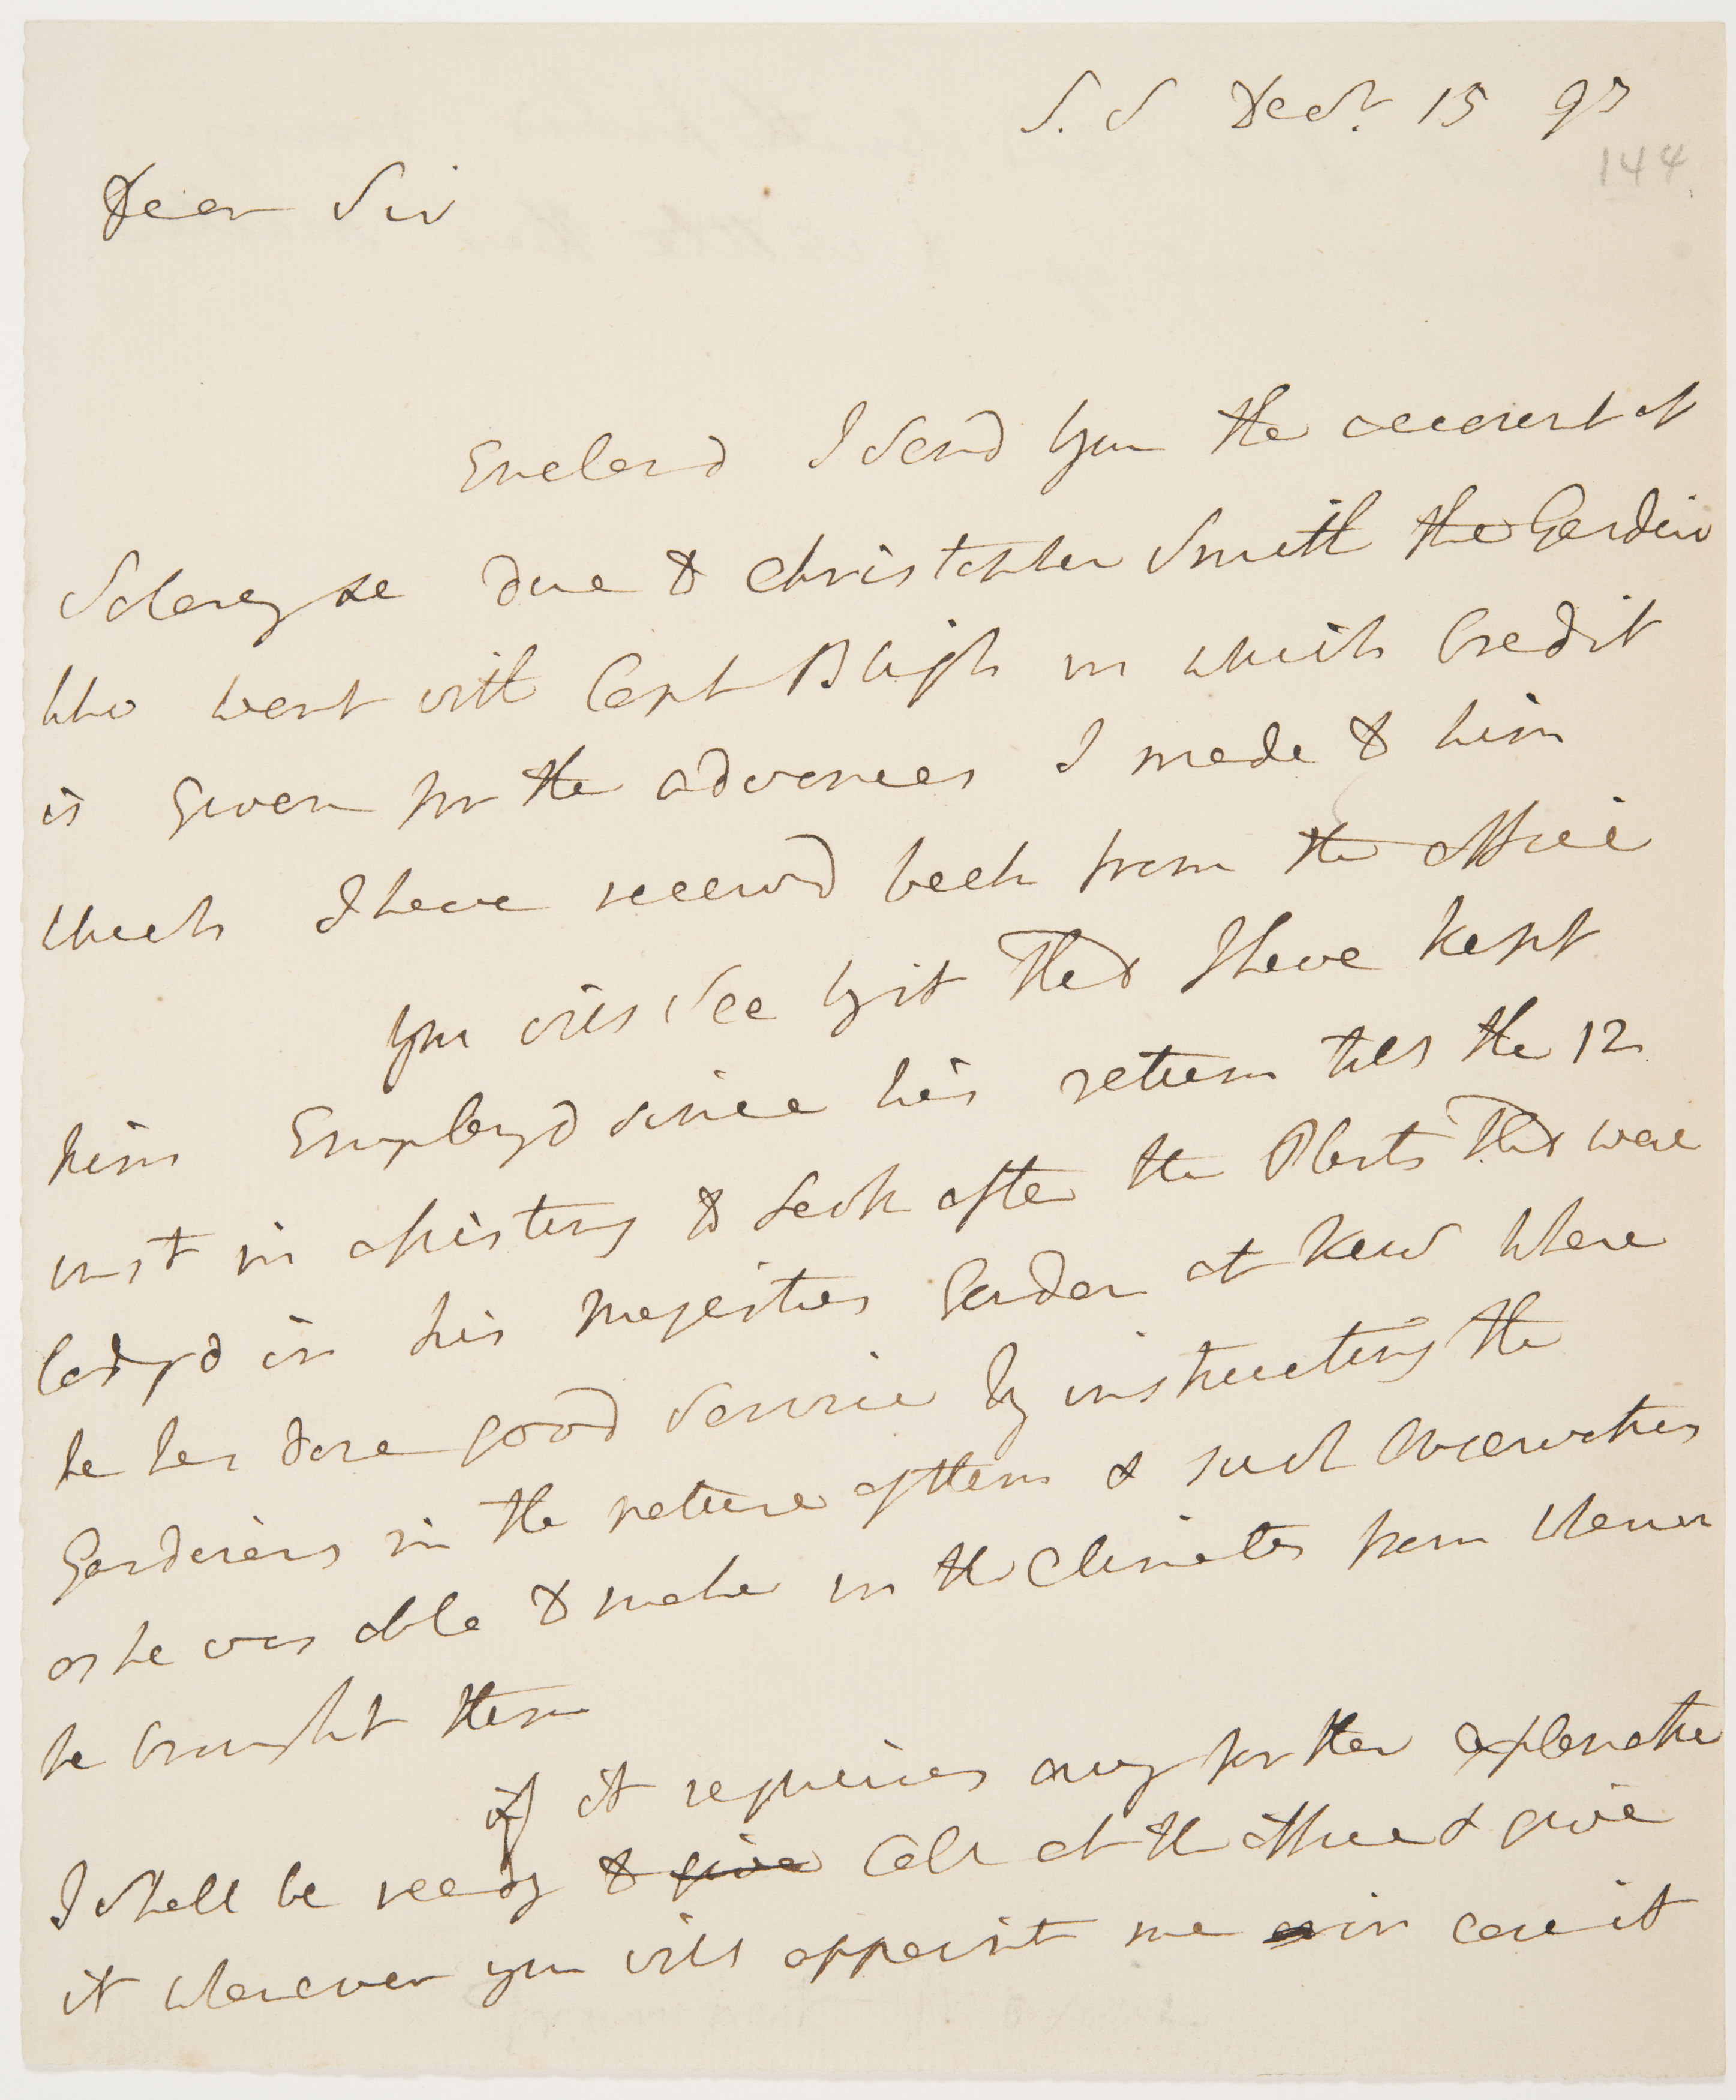 S. S Decr. 15 93
144
Dear Sir
Enclosd I Send you the account of
Salary &c due to Christopher Smith the Gardiner
who went with Capt Bligh in which Credit
is Given for the advances I made to him
which I have receivd back from the office
you will See by it that I have kept
him Employd since his return till the 12
inst in assisting to Look after the Plants that were
Lodgd in his Majesties Garden at Kew where
he has done good Service by instructing the
Gardeners in the nature of them & such observations
as he was able to make in the Climates from whence
he brought them
if it requires any further explanation
I shall be ready to give Call at the office & give
it whenever you will appoint me in case it